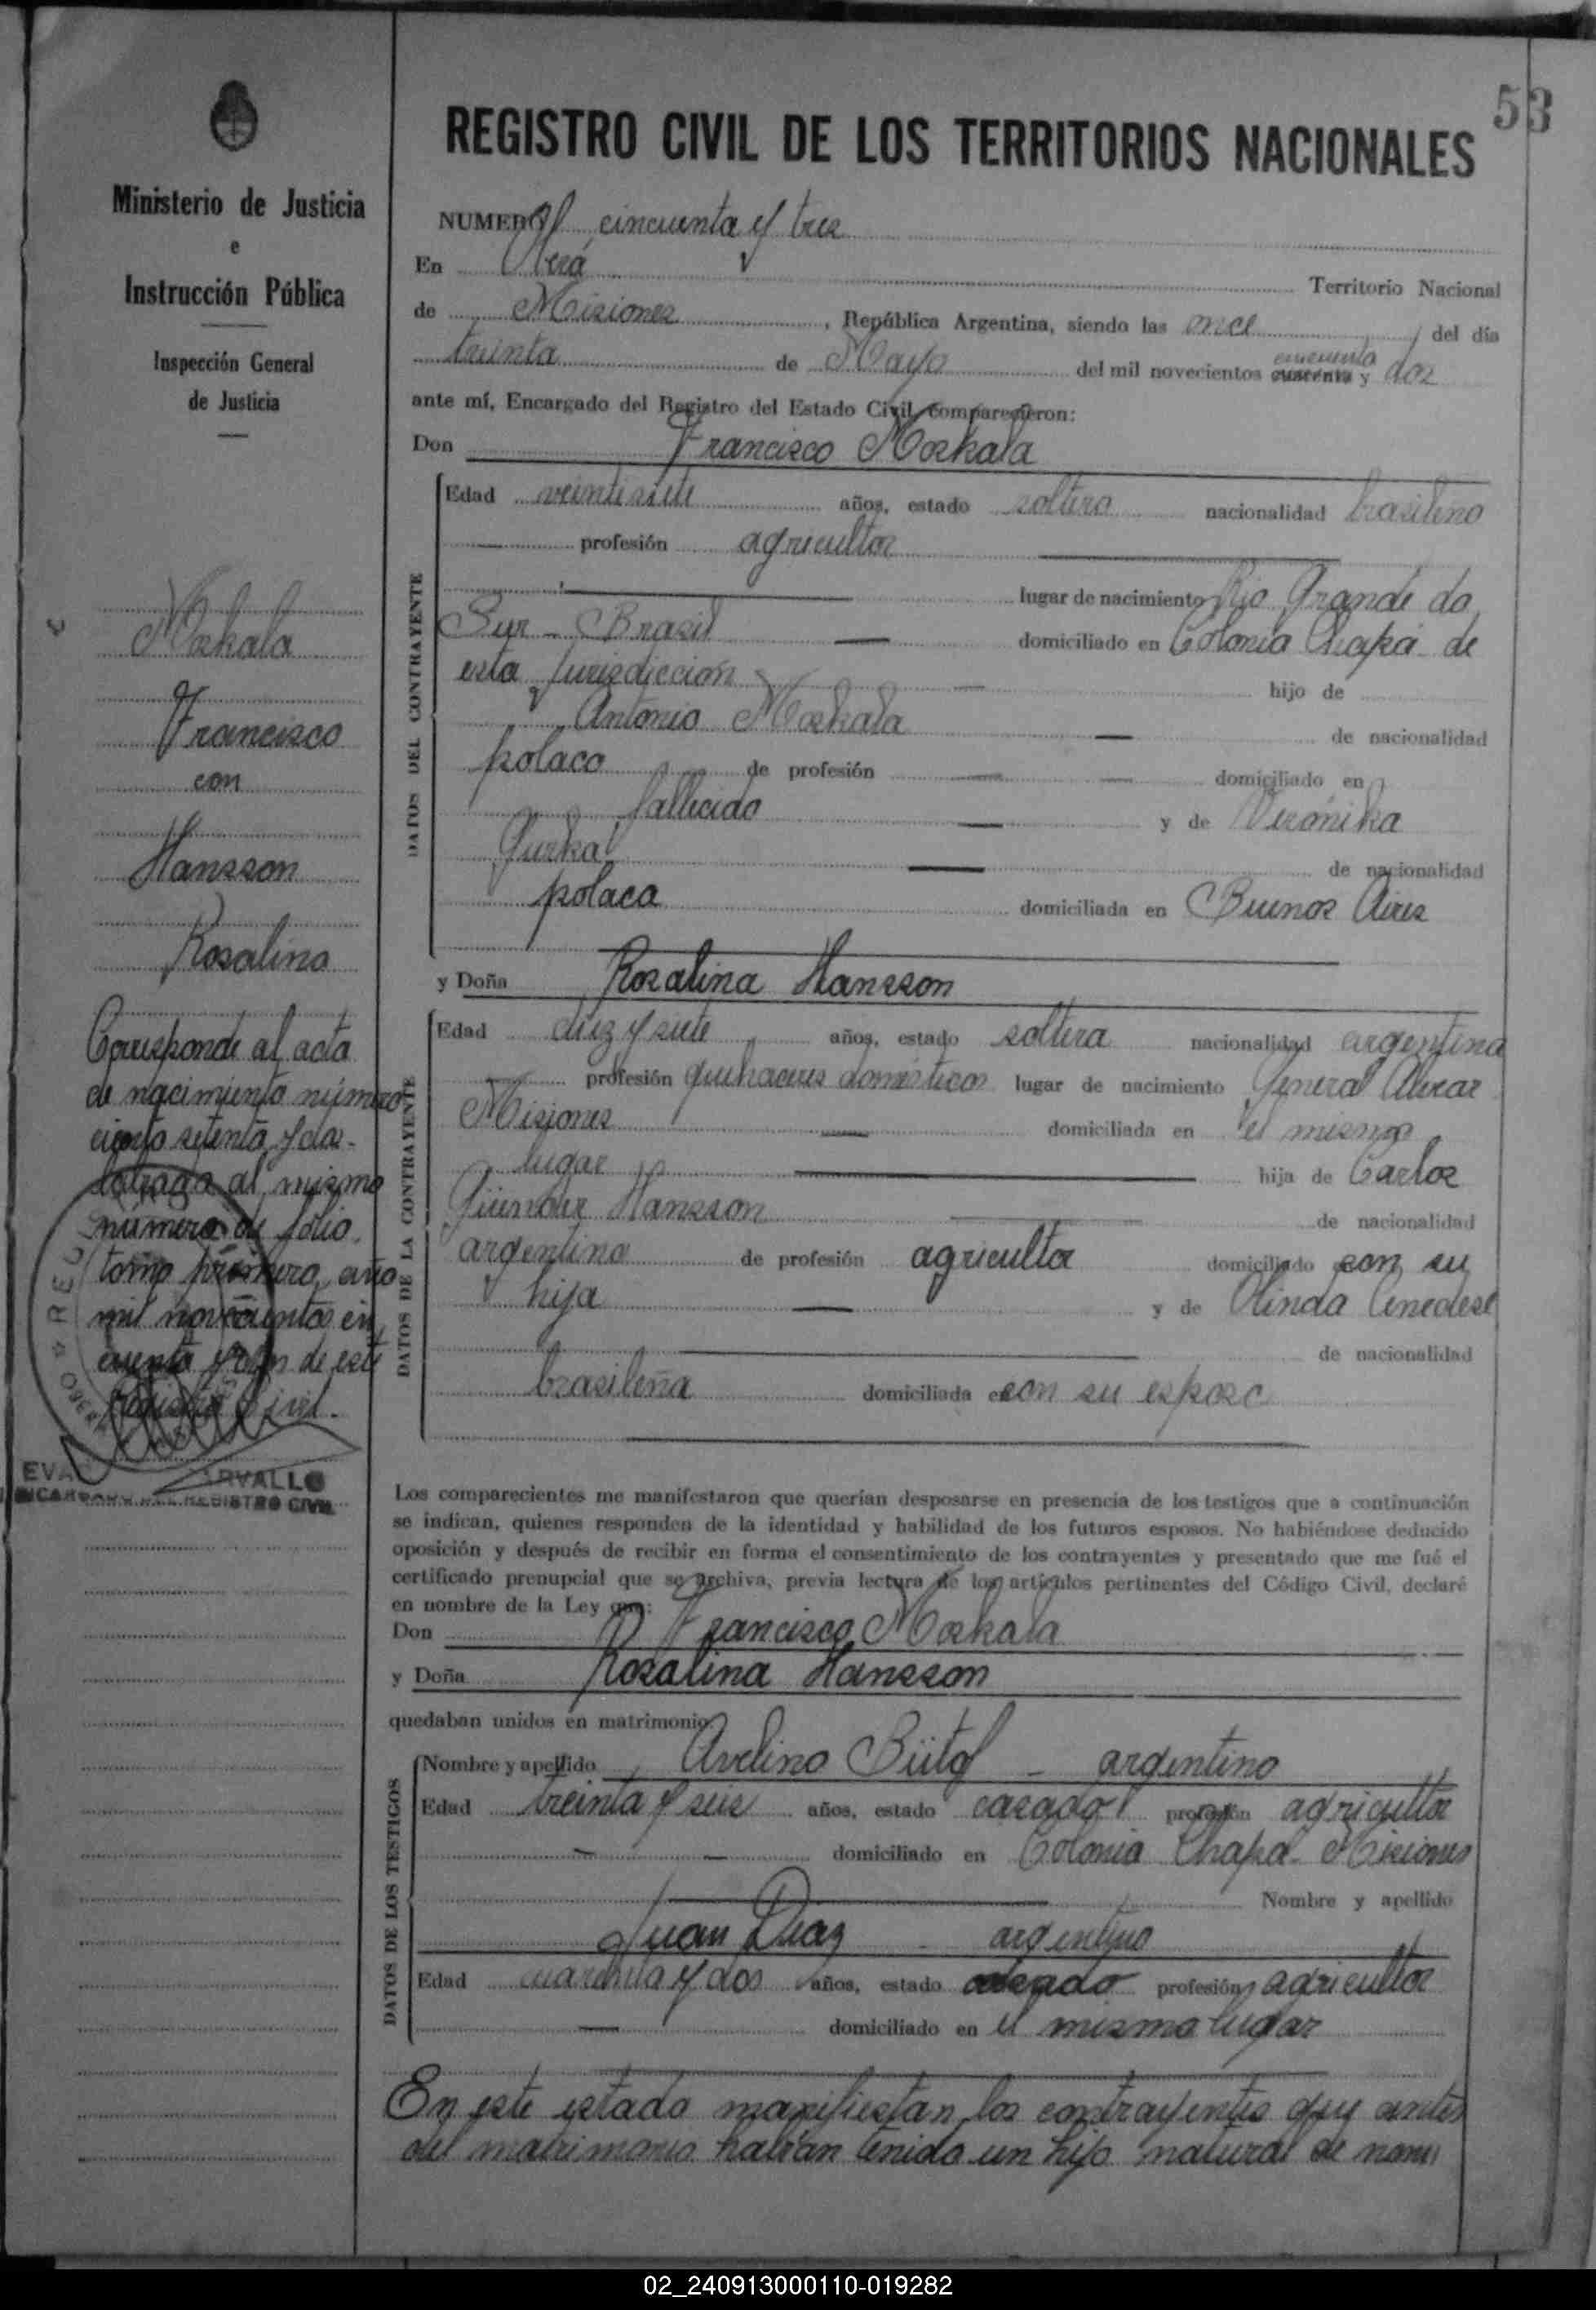 53
Ministerio de Justicia
e
Instrucción Pública
Inspección General
de Justicia
REGISTRO CIVIL DE LOS TERRITORIOS NACIONALES
NUMERO cincuenta y tres
En Oberá Territorio Nacional
de Misiones, República Argentina, siendo las once del día
treinta de Mayo del mil novecientos cuarenta cincuenta y dos
ante mí, Encargado del Registro del Estado Civil, comparecieron:
Don Francisco Moskala
DATOS DEL CONTRAYENTE
Edad veintisiete años, estado soltero nacionalidad brasileno
profesión agricultor
lugar de nacimiento Rio Grande do
Sur - Brasil domiciliado en Colonia Chapá de
esta Jurisdicción hijo de
Antonio Moskala de nacionalidad
polaco de profesión domiciliado en
fallecido y de Verónika
Gurka de nacionalidad
polaca domiciliada en Buenos Aires
y Doña Rosalina Hansson
DATOS DE LA CONTRAYENTE
Edad diez y siete años, estado soltera nacionalidad argentina
profesión quehaceres domésticos lugar de nacimiento General Alvear
Misiones domiciliada en el mismo
lugar hija de Carlos
Günder Hansson de nacionalidad
argentino de profesión agricultor domiciliado con su
hija y de Olinda
de nacionalidad
brasileña domiciliada en con su esposo
Los comparecientes me manifestaron que querían desposarse en presencia de los testigos que a continuación
se indican, quienes responden de la identidad y habilidad de los futuros esposos. No habiéndose deducido
oposición y después de recibir en forma el consentimiento de los contrayentes y presentado que me fué el
certificado prenupcial que se archiva, previa lectura de los artículos pertinentes del Código Civil, declaré
en nombre de la Ley que:
Don Francisco Moskala
y Doña Rosalina Hansson
quedaban unidos en matrimonio.
DATOS DE LOS TESTIGOS
Nombre y apellido Avelino - argentino
Edad treinta y seis años, estado casado profesión agricultor
domiciliado en Colonia Chapá - Misiones
Nombre y apellido
Juan Diaz argentino
Edad cuarenta y dos años, estado casado profesión agricultor
domiciliado en el mismo lugar
En este estado manifiestan los contrayentes que antes
del matrimonio habían tenido un hijo natural de nom
Moskala
Francisco
con
Hansson
Rosalina
Corresponde al acta
de nacimiento número
ciento setenta y dos-
labrada al mismo
número de folio.
tomo primero, año
mil novecientos cin
cuenta de este
Registro Civil.
ENCARGADO DEL REGISTRO CIVIL
02_240913000110-019282